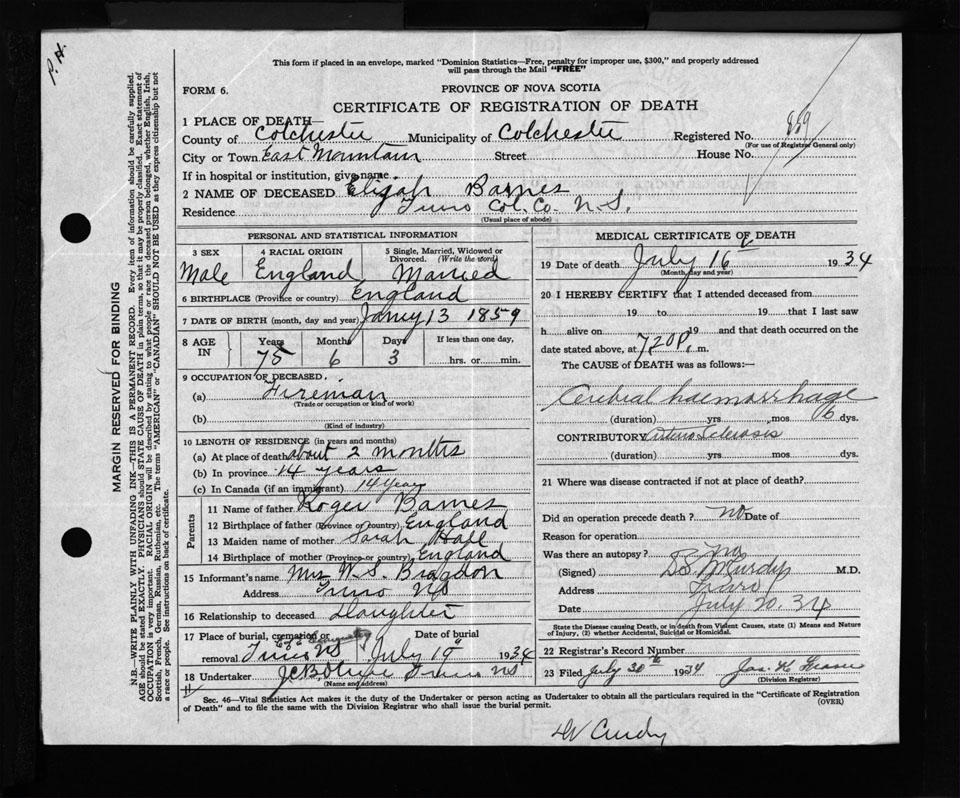 P. H.
This form if placed in an envelope, marked "Dominion Statistics—Free, penalty for improper use, $300," and properly addressed
will pass through the Mail "FREE"
FORM 6.
PROVINCE OF NOVA SCOTIA
CERTIFICATE OF REGISTRATION OF DEATH
1 PLACE OF DEATH—
County of Colchester Municipality of Colchester Registered No. 889
(For use of Registrar General only)
City or Town East Mountain Street House No.
If in hospital or institution, give name
2 NAME OF DECEASED Elijah Barnes
Residence Truro Col. Co. N.S.
(Usual place of abode)
PERSONAL AND STATISTICAL INFORMATION
3 SEX 4 RACIAL ORIGIN 5 Single, Married, Widowed or
Divorced. (Write the word)
Male England Married
6 BIRTHPLACE (Province or country) England
7 DATE OF BIRTH (month, day and year) Jany 13 1859
8 AGE IN Years Months Days If less than one day,
75 6 3 hrs. or min.
9 OCCUPATION OF DECEASED,
(a) Fireman
(Trade or occupation or kind of work)
(b)
(Kind of industry)
10 LENGTH OF RESIDENCE (in years and months)
(a) At place of death about 2 months
(b) In province 14 years
(c) In Canada (if an immigrant) 14 years
Parents
11 Name of father Roger Barnes
12 Birthplace of father (Province or country) England
13 Maiden name of mother Sarah Hall
14 Birthplace of mother (Province or country) England
15 Informant's name Mrs W. S. Bragdon
Address Truro NS
16 Relationship to deceased Daughter
17 Place of burial, cremation or Date of burial
Cemetery
removal Truro NS July 19" 1934
18 Undertaker Truro NS
(Name and address)
MEDICAL CERTIFICATE OF DEATH
19 Date of death July 16 1934
(Month, day and year)
20 I HEREBY CERTIFY that I attended deceased from
19 to 19 that I last saw
h alive on 19 and that death occurred on the
date stated above, at 7 20 P. m.
The CAUSE of DEATH was as follows:—
Cerebral haemorrhage
(duration) yrs. mos. 6 dys.
CONTRIBUTORY Arterio Sclerosis
(duration) yrs. mos. dys.
21 Where was disease contracted if not at place of death?
Did an operation precede death? no Date of
Reason for operation
Was there an autopsy? no
(Signed) M.D.
Address Truro
Date July 20. 34
State the Disease causing Death, or in death from Violent Causes, state (1) Means and Nature
of Injury, (2) whether Accidental, Suicidal or Homicidal.
22 Registrar's Record Number
23 Filed July 30th 1934
(Division Registrar)
Sec. 46—Vital Statistics Act makes it the duty of the Undertaker or person acting as Undertaker to obtain all the particulars required in the "Certificate of Registration
of Death" and to file the same with the Division Registrar who shall issue the burial permit. (OVER)
MARGIN RESERVED FOR BINDING
N.B.—WRITE PLAINLY WITH UNFADING INK—THIS IS A PERMANENT RECORD. Every item of information should be carefully supplied.
AGE should be stated EXACTLY. PHYSICIANS should STATE CAUSE OF DEATH in plain terms, so that it may be properly classified. Exact statement of
OCCUPATION is very important. RACIAL ORIGIN will be described by stating to what people or race the deceased person belonged, whether English, Irish,
Scottish, French, German, Russian, Ruthenian, etc. The terms "AMERICAN" or "CANADIAN" SHOULD NOT BE USED as they express citizenship but not
a race or people. See instructions on back of certificate.